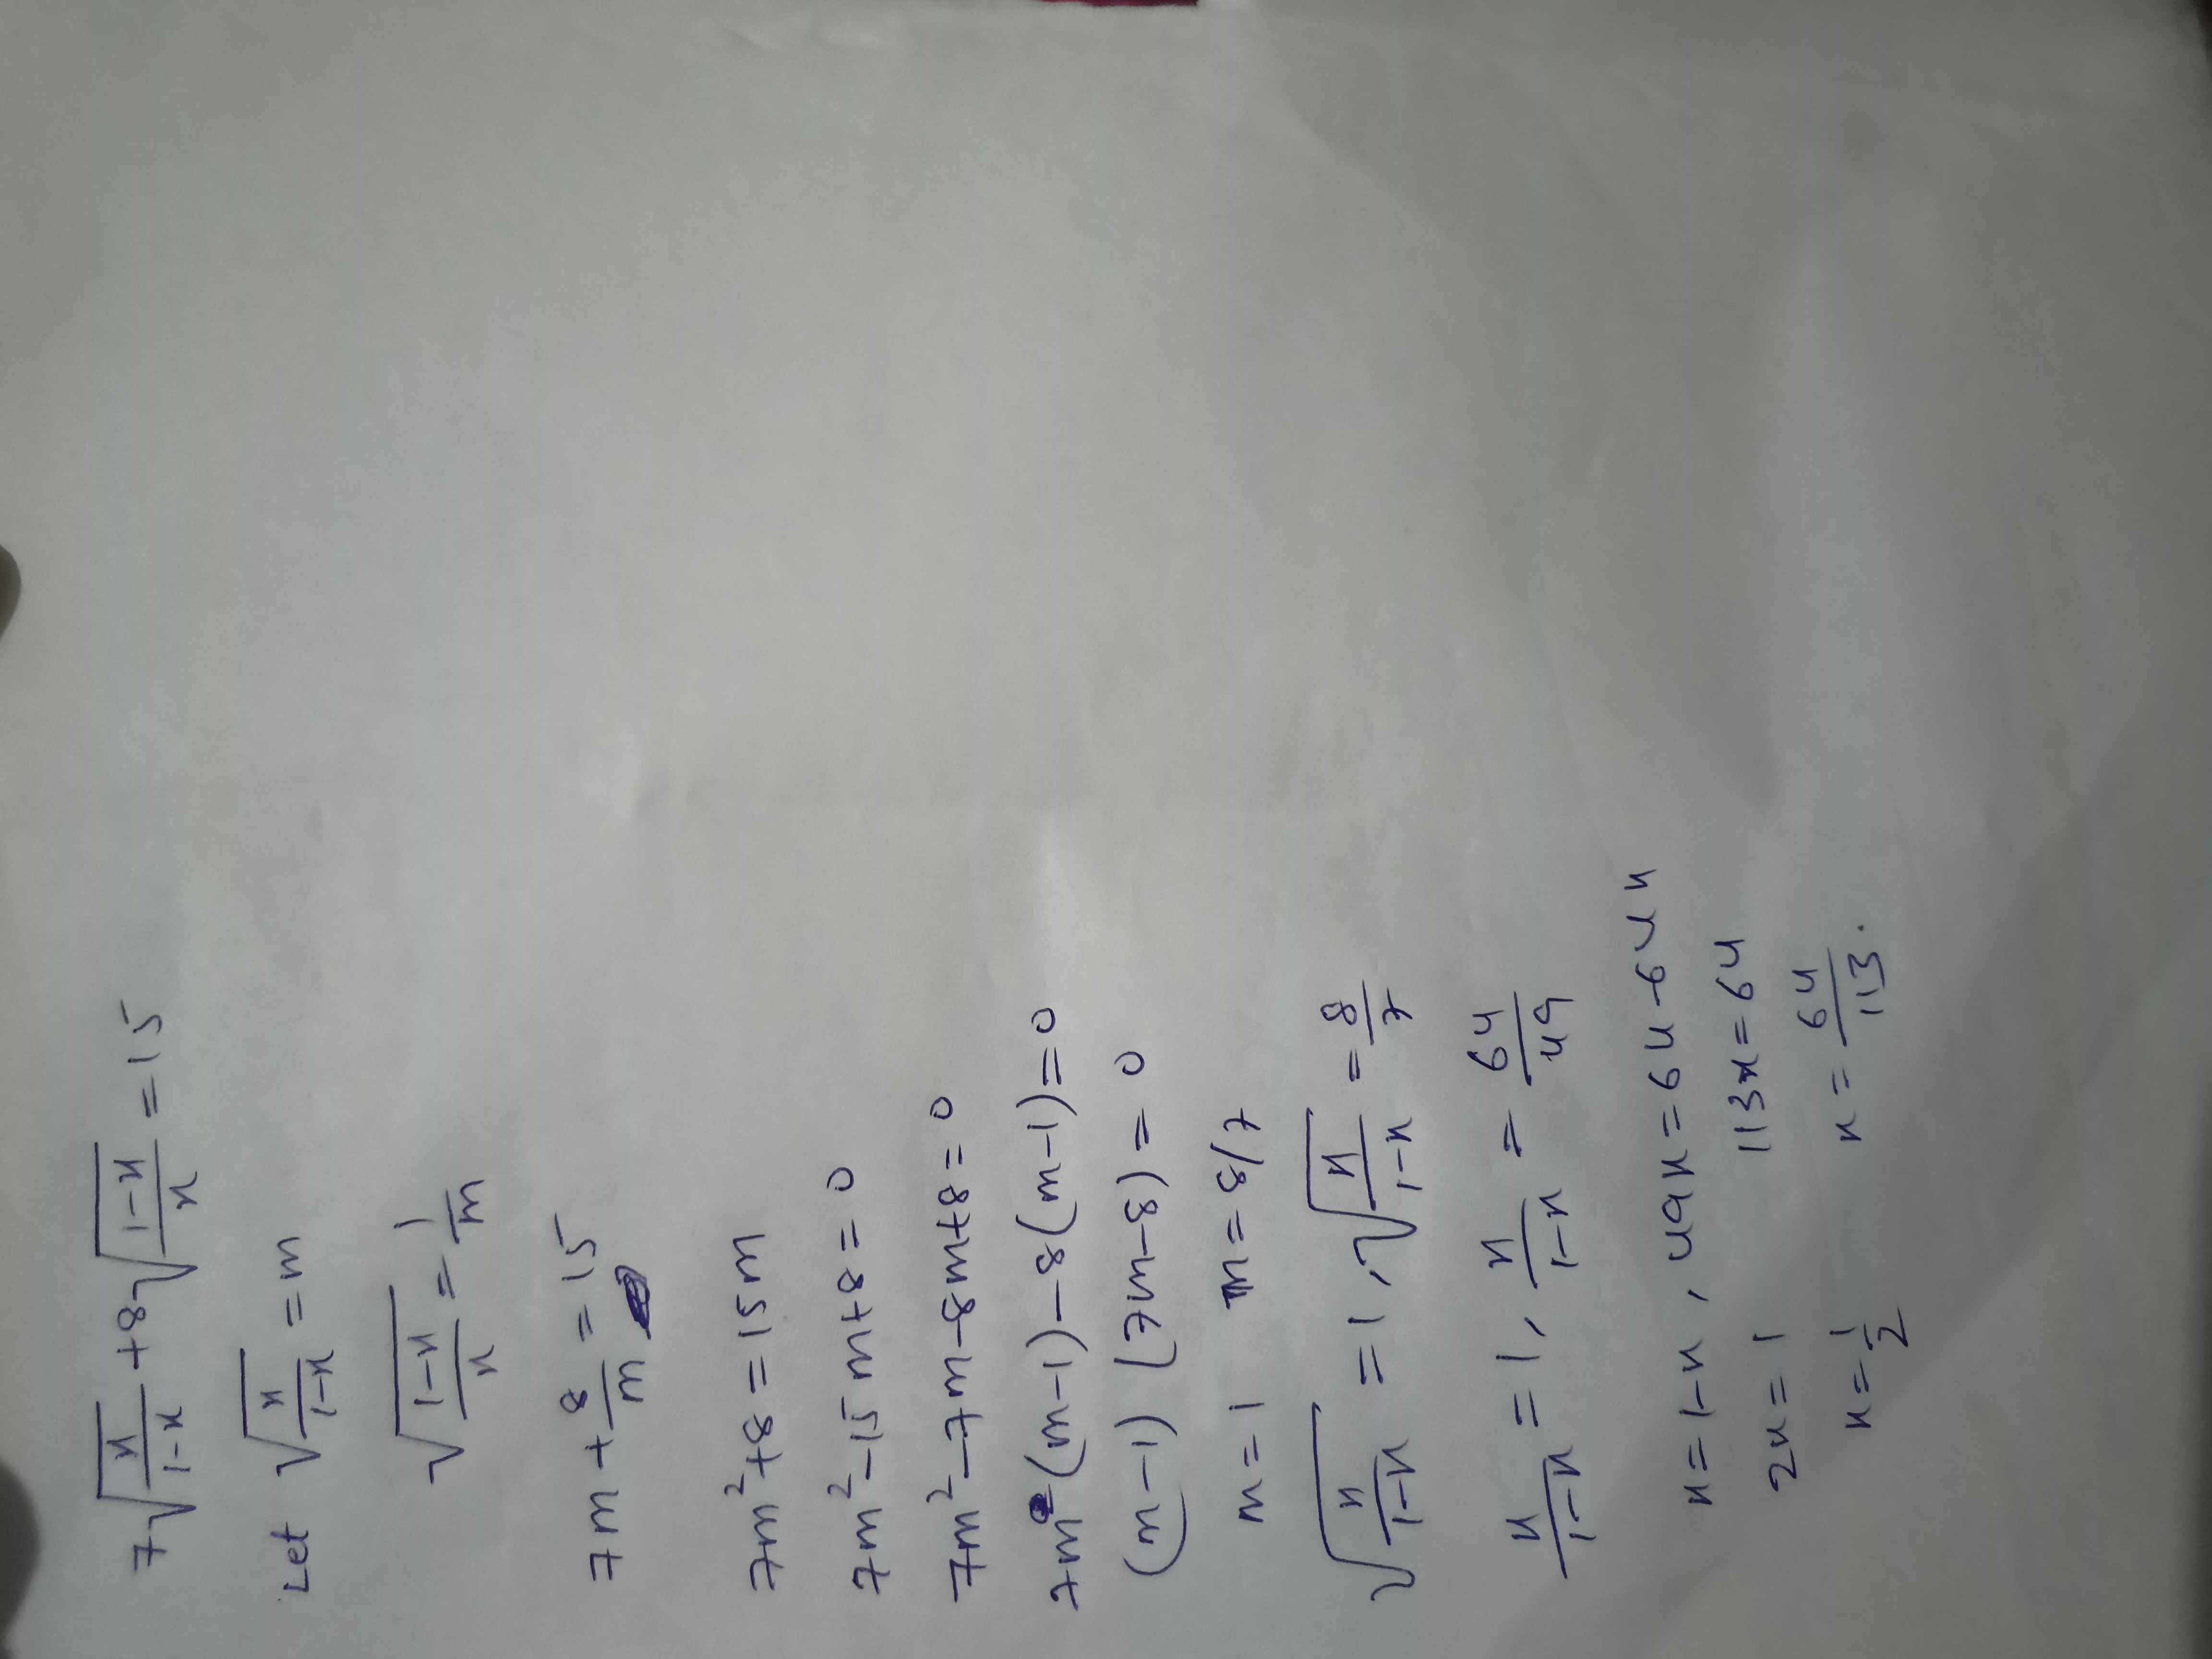 7√(x/(1-x)) + 8√((1-x)/x) = 15
Let √(x/(1-x)) = m
√((1-x)/x) = 1/m
7m + 8/m = 15
7m² + 8 = 15m
7m² - 15m + 8 = 0
7m² - 7m - 8m + 8 = 0
7m(m-1) - 8(m-1) = 0
(m-1) (7m-8) = 0
m = 1 m = 8/7
√(x/(1-x)) = 1, √(x/(1-x)) = 8/7
x/(1-x) = 1, x/(1-x) = 64/49
x = 1-x, 49x = 64 - 64x
2x = 1 113x = 64
x = 1/2 x = 64/113.